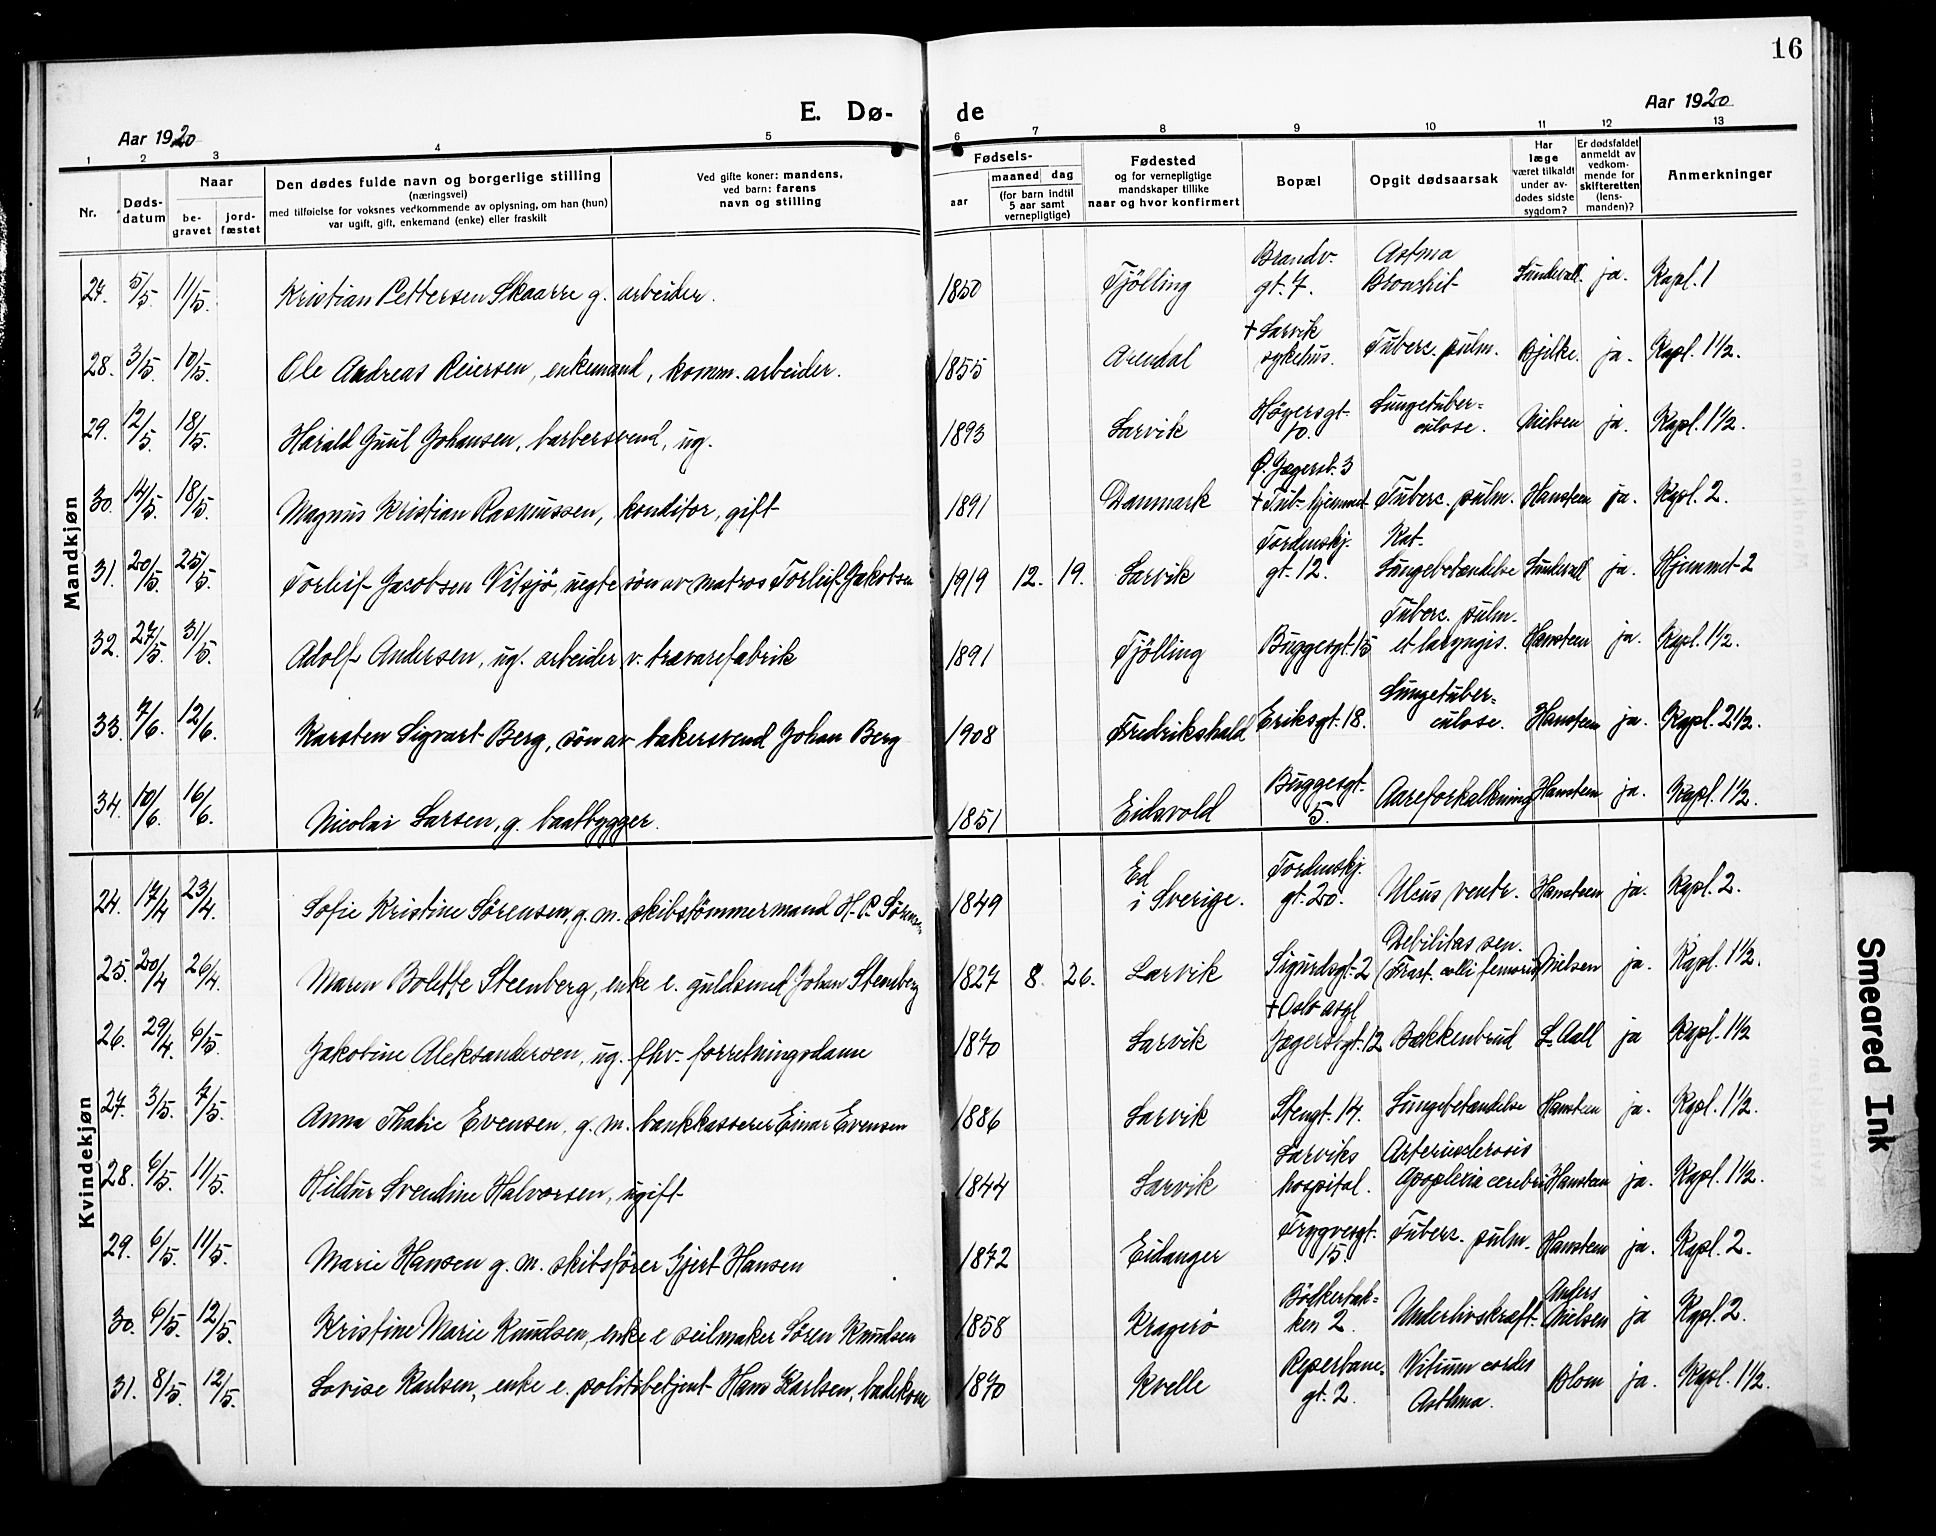 16
E. Dø- de
Aar 1920 Aar 1920
1 2 3 4 5 6 7 8 9 10 11 12 13
Nr.
Døds-
datum
Naar
be-
gravet
jord-
fæstet
Den dødes fulde navn og borgerlige stilling
(næringsvei)
med tilføielse for voksnes vedkommende av oplysning, om han (hun)
var ugift, gift, enkemand (enke) eller fraskilt
Ved gifte koner: mandens,
ved barn: farens
navn og stilling
Fødsels-
aar
maaned dag
(for barn indtil
5 aar samt
vernepligtige)
Fødested
og for vernepligtige
mandskaper tillike
naar og hvor konfirmert
Bopæl
Opgit dødsaarsak
Har
læge
været tilkaldt
under av-
dødes sidste
sygdom?
Er dødsfaldet
anmeldt av
vedkom-
mende for
skifteretten
(lens-
manden)?
Anmerkninger
Mandkjøn
27. 5/5. 11/5. Kristian Pettersen Skaarre g. arbeider. 1850 Tjølling Brandv. gt. 7. Astma Bronkit Sundevall. ja. Kapl. 1
28. 3/5. 10/5. Ole Andreas Reiersen, enkemand, komm. arbeider. 1855 Arendal + Larvik sykehus. Tuberc. pulm. Bjelke. ja. Kapl. 1½.
29. 12/5. 18/5. Harald Juul Johansen, barbersvend, ug. 1893 Larvik Høyersgt. 10. Lungetuber-culose. Nielsen ja. Kapl. 1½.
30. 14/5. 18/5. Magnus Kristian Rasmussen, konditor, gift 1891 Danmark Ø. Jegersb. 3 + Tub-hjemmet Tuberc. pulm. Hansteen ja. Kapl. 2.
31. 20/5. 25/5. Torleif Jacobsen Vitsjø, uegte søn av matros Torleif Jakobsen 1919 12. 19. Larvik Tordenskj. gt. 12. Kat. Lungebetændelse Sundevall ja. Hjemmet 2
32. 27/5. 31/5. Adolf Andersen, ug. arbeider v. trævarefabrik 1891 Tjølling Buggesgt. 15 Tuberc. pulm. et laryngis. Hansteen ja. Kapl. 1½.
33. 7/6. 12/6. Karsten Sigvart Berg, søn av bakersvend Johan Berg 1908 Fredrikshald Eriksgt. 18. Lungetuber-culose. Hansteen ja. Kapl. 2½.
34. 10/6. 16/6. Nicolai Larsen, g. baatbygger. 1851 Eidsvold Buggesgt. 5. Aareforkalkning Hansteen ja. Kapl. 1½.
Kvindekjøn
24. 17/4 23/4. Sofie Kristine Sørensen, g. m. skibstømmermand H. C. Sørensen 1849 Ed i Sverige. Tordenskj. gt. 20. Ulcus ventr. Hansteen ja. Kapl. 2.
25. 20/4 26/4. Maren Bolette Steenberg, enke e. guldsmed Johan Steenberg 1827 8. 26. Larvik Sigurdsgt. 2 Debilitas sen. (Fract. colli femoris Nielsen ja. Kapl. 1½.
26. 29/4. 6/5. Jakobine Aleksandersen, ug. fhv. forretningsdame 1870 Larvik + Oslo Jegersbgt. 12 Bækkenbrud L. Aall ja Kapl. 1½
27. 3/5. 7/5. Anna Thalie Evensen, g. m. bankkasserer Einar Evensen 1886 Larvik Stengt. 14. Lungebetændelse Hansteen ja. Kapl. 1½.
28. 6/5. 11/5. Hildur Svendine Halvorsen, ugift 1844 Larvik Larviks hospital. Arteriosclerosis Apoplexia cerebri Hansteen ja. Kapl. 1½.
29. 6/5. 11/5. Marie Hansen g. m. skibsfører Gjert Hansen 1872 Eidanger Trygvesgt. 15. Tuberc. pulm. Hansteen ja. Kapl. 2.
30. 6/5. 12/5. Kristine Marie Knudsen, enke e seilmaker Søren Knudsen 1858 Kragerø Bødkerbak-ken 2. Underlivskræft. Anders Nielsen ja Kapl. 2.
31. 8/5. 12/5. Lovise Karlsen, enke e. politibetjent Hans Karlsen, badekone 1870 Kvelle Reperbane-gt. 2. Vitium cordis Asthma. Blom ja. Kapl. 1½.
Smeared Ink